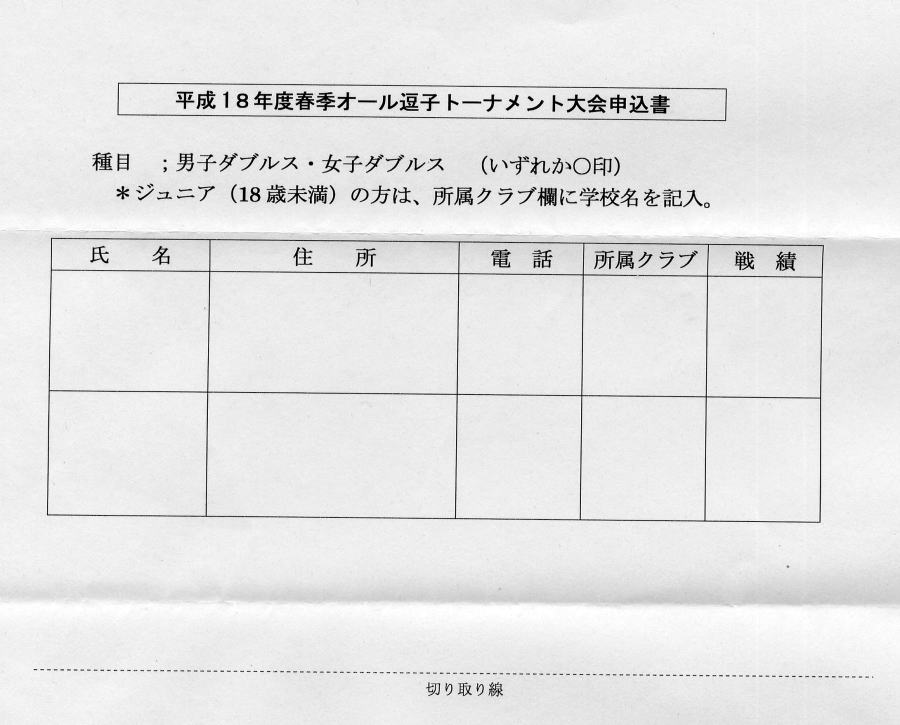 平成18年度春季オール逗子トーナメント大会申込書
種目　；男子ダブルス・女子ダブルス　（いずれか〇印）
＊ジュニア（18歳未満）の方は、所属クラブ欄に学校名を記入。
氏　名　住　所　電　話　所属クラブ　戦　績
切り取り線